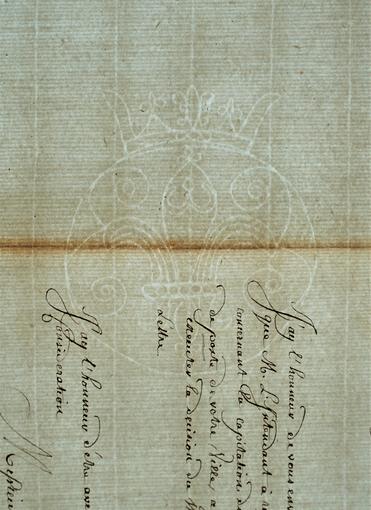 J'ay l'honneur de vous env
que M. L'Intendant a r
concernant la capitation d
de poste de votre Ville, a
executer la decision du
Lettre.
J'ay l'honneur d'être avec
Consideration